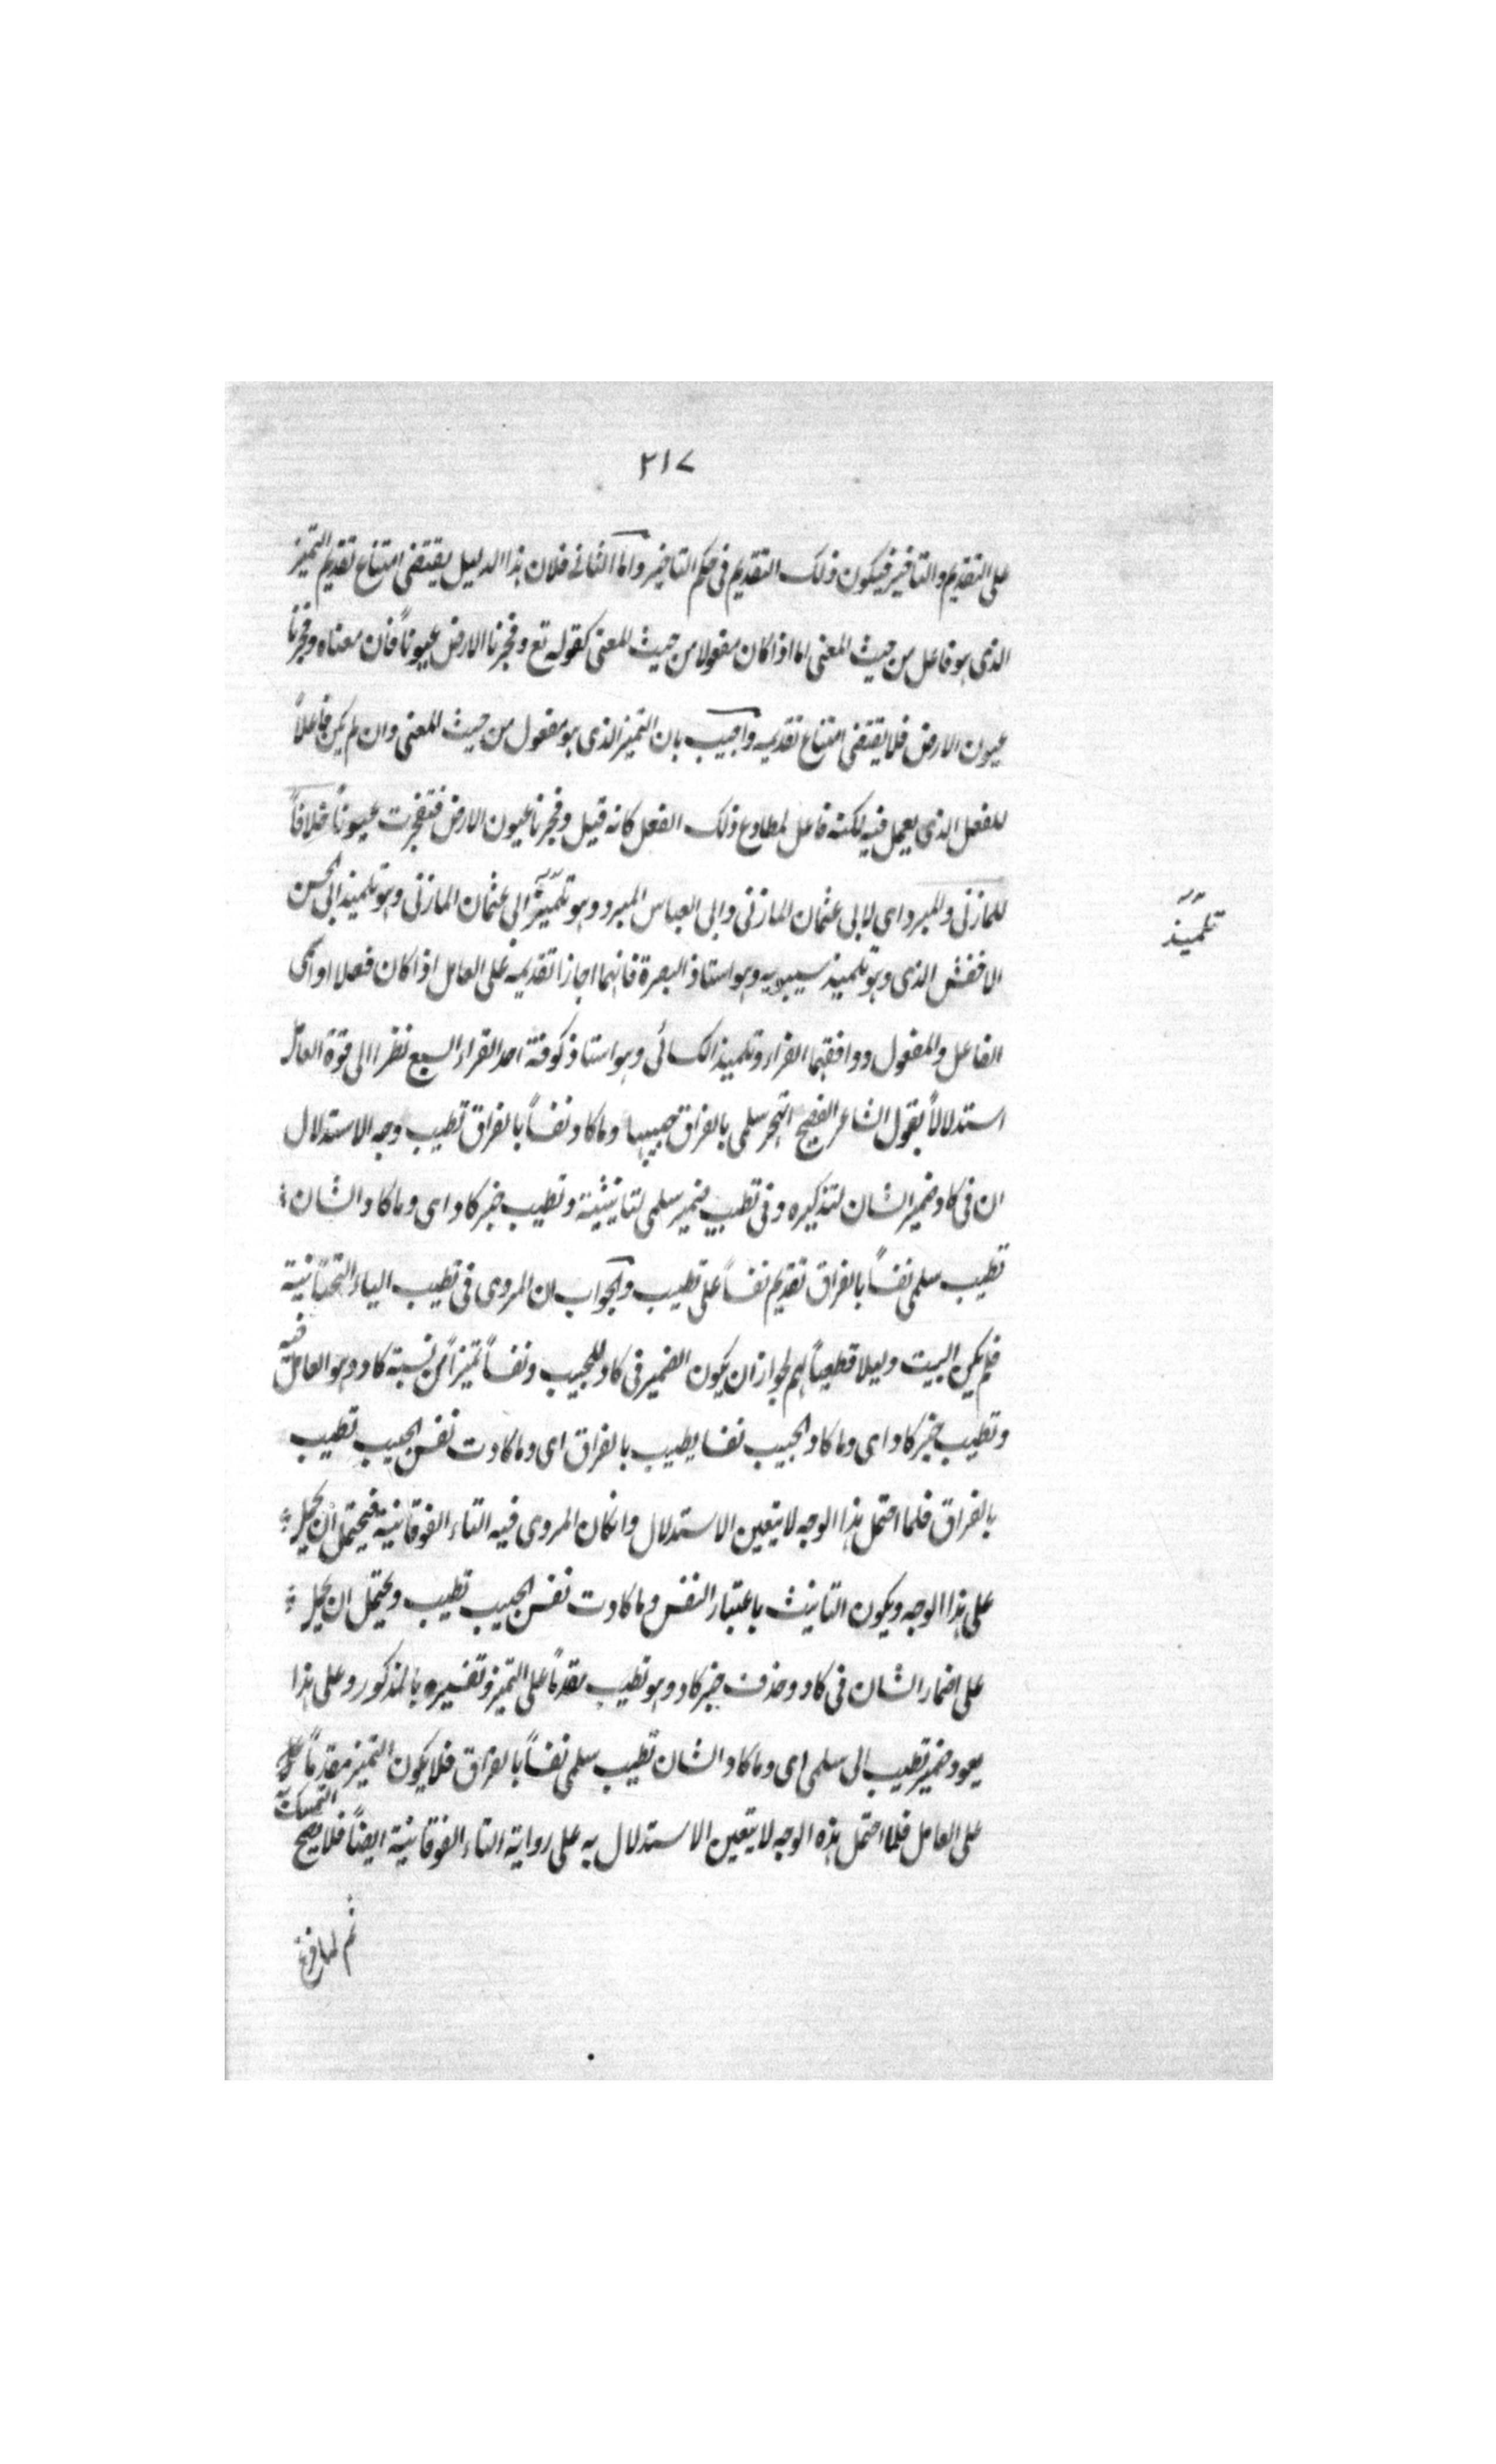 ٢١٧
على التقديم والتاخير فيكون ذلك التقديم فى حكم التاخير واما الثانى فلان هذا الدليل يقتضى امتناع تقديم التميز
الذى هو فاعل من حيث المعنى اما اذا كان مفعولا من حيث المعنى كقوله تع وفجرنا الارض عيوناً فان معناه وفجرنا
عيون الارض فلا يقتضى امتناع تقديمه واجيب بان التميز الذى هو مفعول من حيث المعنى وان لم يكن فاعلاً
للفعل الذى يعمل فيه لكنه فاعل لمطاوع ذلك الفعل كانه قيل وفجرنا عيون الارض فتفجرت عيوناً خلافاً
للمازنى والمبرد اى لابى عثمان المازنى وابى العباس المبرد وهو تلميذ ابى عثمان المازنى وهو تلميذ ابى الحسن
تلميذ
الاخفش الذى وهو تلميذ سيبويه وهو استاذ البصرة فانهما اجازا تقديمه على العامل اذا كان فعلا او اسمى
الفاعل والمفعول ووافقهما الفراء وتلميذ الكسائى وهو استاذ كوفة احد القراء السبع نظرا الى قوة العامل
استدلالاً بقول الشاعر الفصيح اتهجر سلمى بالفراق حبيبها وما كاد نفساً بالفراق تطيب وجه الاستدلال
ان فى كاد ضمير الشان لتذكيره وفى تطيب ضمير سلمى لتانيثية وتطيب خبر كاد اى وما كاد الشان
تطيب سلمى نفساً بالفراق تقديم نفساً على تطيب والجواب ان المروى فى تطيب الياء التحتانية
فلم يكن البيت دليلا قطعياً لهم لجواز ان يكون الضمير فى كاد للحبيب ونفساً تميزاً من نسبة كاد وهو العامل فيه
وتطيب خبر كاد اى وما كاد الحبيب نفسا يطيب بالفراق اى وما كادت نفس الحبيب تطيب
بالفراق فلما احتمل هذا الوجه لا يتعين الاستدلال وان كان المروى فيه التاء الفوقانية فيحتمل ان يحمل
على هذا الوجه ويكون التانيث باعتبار النفس وما كادت نفس الحبيب تطيب ويحتمل ان يحمل
على اضمار الشان فى كاد وحذف خبر كاد وهو تطيب مقدماً على التميز وتفسيره بالمذكور وعلى هذا
يعود ضمير تطيب الى سلمى اى وما كاد الشان تطيب سلمى نفساً بالفراق فلا يكون التميز مقدماً
على العامل فلما احتمل هذه الوجه لا يتعين الاستدلال به على رواية التاء الفوقانية ايضاً فلا يصح التمسك به
ثم لما فرغ